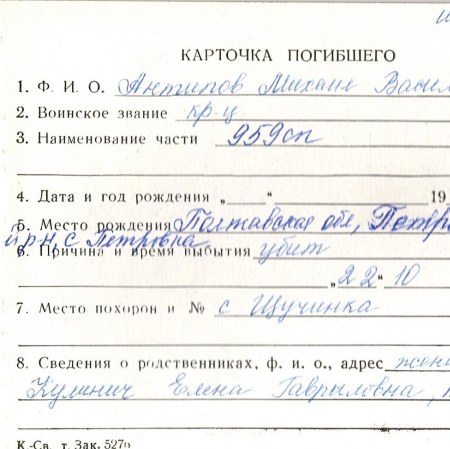 КАРТОЧКА ПОГИБШЕГО
1. Ф. И. О. Антипов Михаил Васил
2. Воинское звание кр-ц
3. Наименование части 959сп
4. Дата и год рождения „ “ 19
5. Место рождения Полтавская обл, Петр
й р-н, с Петровка
6. Причина и время выбытия убит
„22“ 10
7. Место похорон и № с Щучинка
8. Сведения о родственниках, ф. и. о., адрес жен
Кулинич Елена Гаврыловна,
К.-Св. т. Зак. 527б